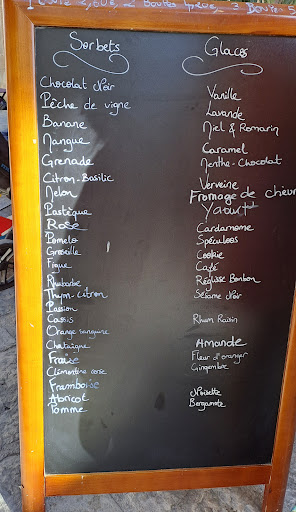 1 Boule 2,60€, 2 Boules
Sorbets
Chocolat Noir
Pêche de vigne
Banane
Mangue
Grenade
Citron-Basilic
Melon
Pastèque
Rose
Pomelo
Groseille
Figue
Rhubarbe
Thym-citron
Passion
Cassis
Orange sanguine
Chataigne
Fraise
Clémentine corse
Framboise
Abricot
Pomme
Glaces
Vanille
Lavande
Miel & Romarin
Caramel
Menthe-Chocolat
Verveine
Fromage de chèvr
Yaourt
Cardamome
Spéculoos
Cookie
Café
Réglisse Bonbon
Sésame Noir
Rhum Raisin
Amande
Fleur d'oranger
Gingembre
Noisette
Bergamote